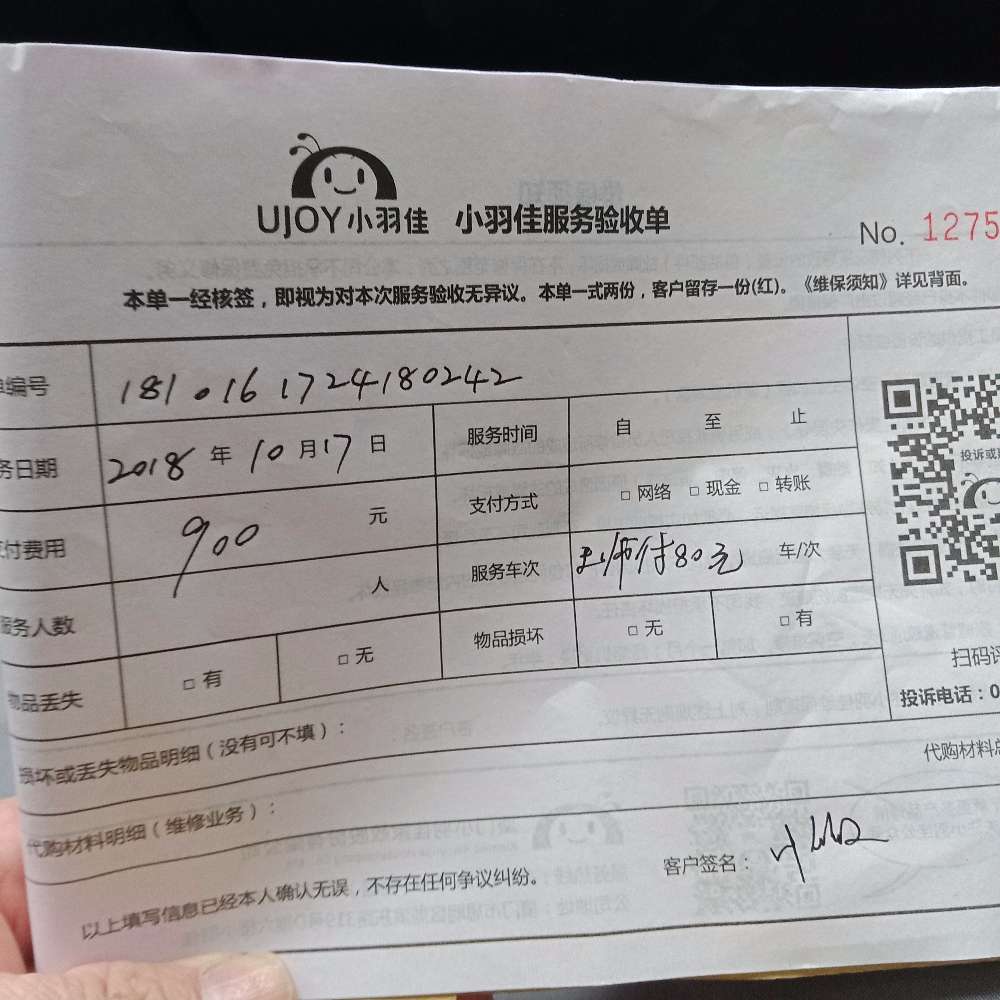 UJOY小羽佳 小羽佳服务验收单
No. 1275
本单一经核签，即视为对本次服务验收无异议。本单一式两份，客户留存一份(红)。《维保须知》详见背面。
编号 181016 1724180242
务日期 2018 年 10 月 17 日 服务时间 自 至 止
付费用 900 元 支付方式 □ 网络 □ 现金 □ 转账
服务人数 人 服务车次 付80元 车/次
物品丢失 □ 有 □ 无 物品损坏 □ 无 □ 有
投诉或
扫码评
投诉电话：0
损坏或丢失物品明细（没有可不填）：
代购材料总
代购材料明细（维修业务）：
以上填写信息已经本人确认无误，不存在任何争议纠纷。
客户签名：